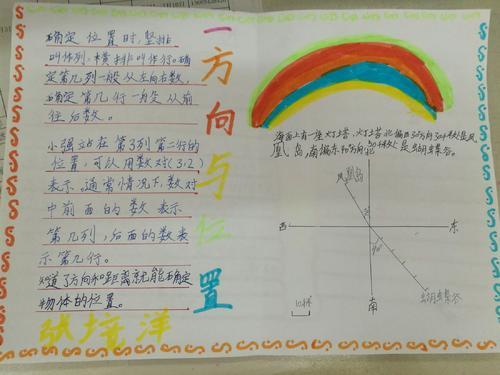 确定位置时,竖排
叫作列,横排叫作行。确
定第几列一般从左向右数,
确定第几行一般从前
往后数。
小强站在第3列第二行的
位置,可以用数对(3,2)
表示。通常情况下,数对
中前面的数表示
第几列,后面的数表
示第几行。
知道了方向和距离就能确定
物体的位置。
张培洋
一方向与位置
海面上有一座灯塔,灯塔北偏西30方向30千米处是凤
凰岛,南偏东40方向50千米处是蝴蝶谷。
凤凰岛
北
西
东
40°
南
蝴蝶谷